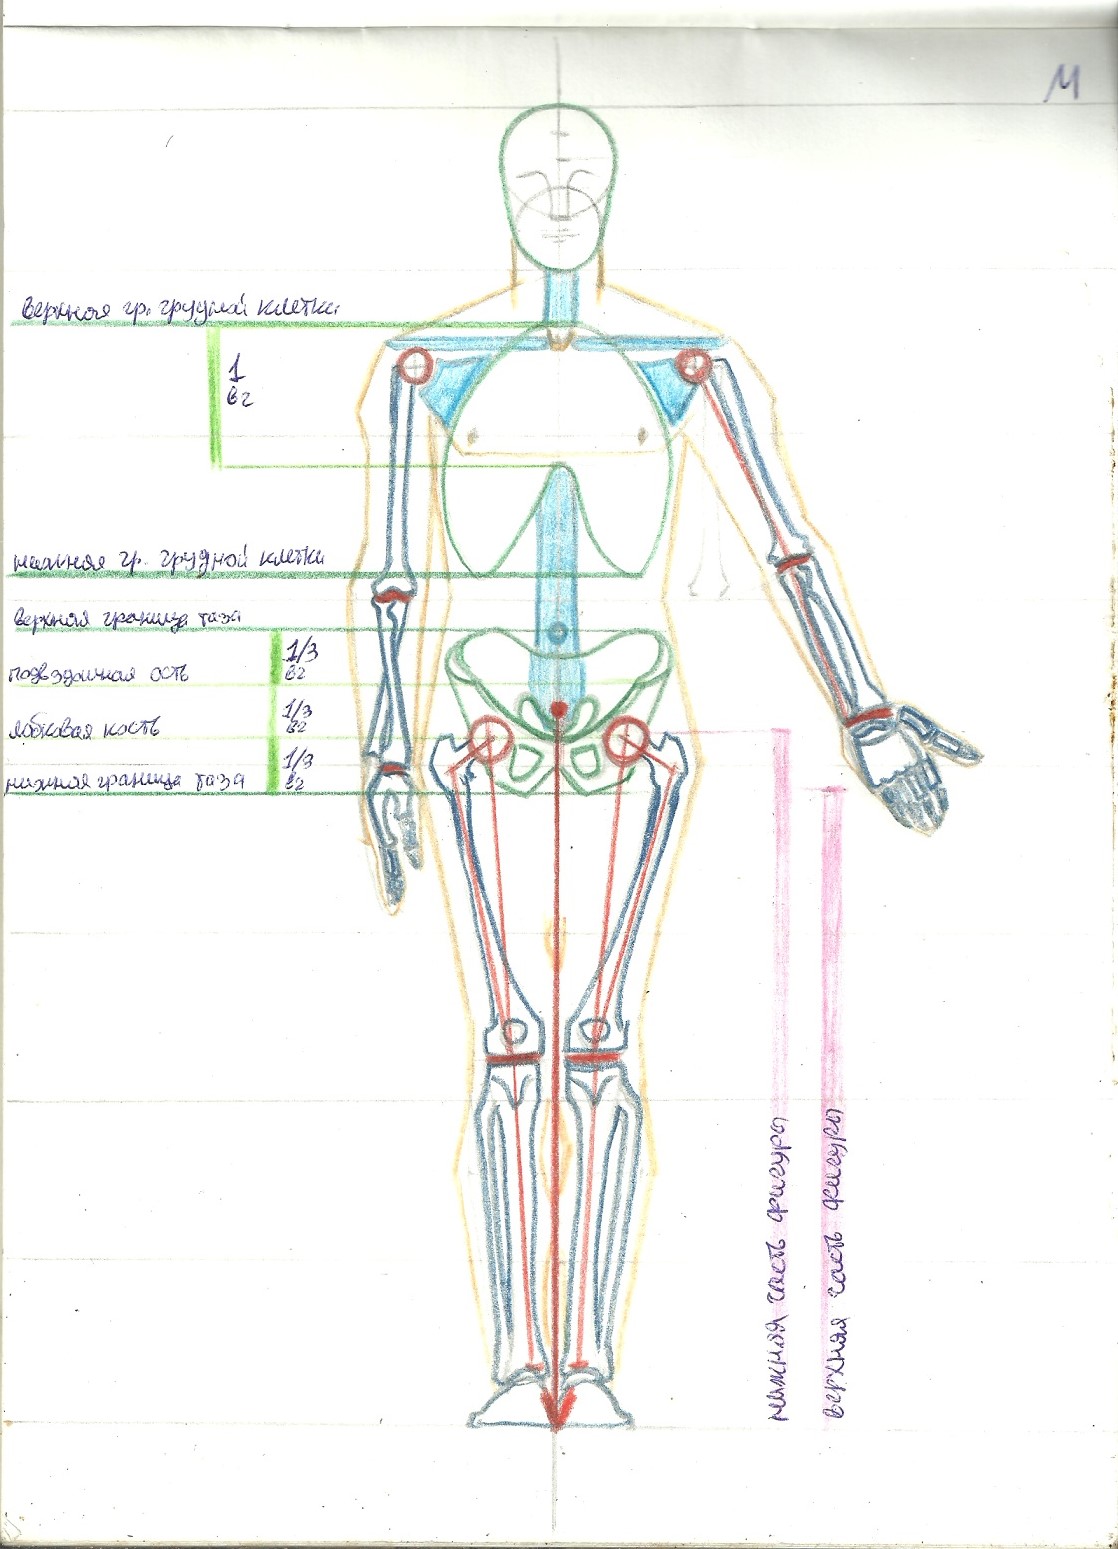 М
верхняя гр. грудной клетки
1
вг
нижняя гр. грудной клетки
верхняя граница таза
1/3
вг
подвздошная ость
1/3
вг
лобковая кость
1/3
вг
нижняя граница таза
нижняя часть фигуры
верхняя часть фигуры